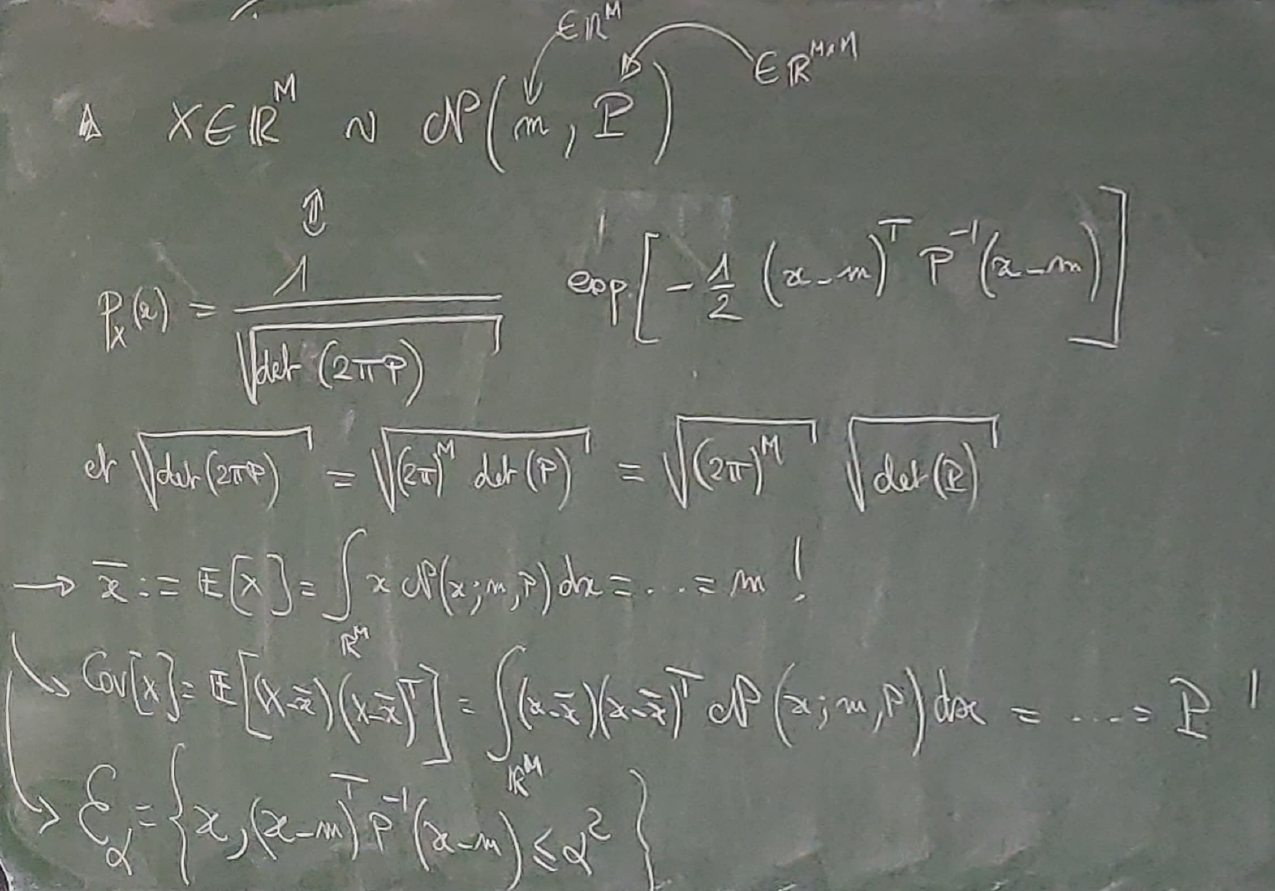 ∈ ℝ^M
∈ ℝ^{M×M}
Δ X ∈ ℝ^M ~ 𝒩(m, P)
⇕
p_X(x) = 1 / √det(2πP) exp[-1/2 (x-m)^T P^{-1} (x-m)]
et √det(2πP) = √((2π)^M det(P)) = √((2π)^M) √det(P)
→ x̄ := 𝔼[X] = ∫_{ℝ^M} x 𝒩(x; m, P) dx = ... = m !
↳ Cov[X] = 𝔼[(X-x̄)(X-x̄)^T] = ∫_{ℝ^M} (x-x̄)(x-x̄)^T 𝒩(x; m, P) dx = ... = P !
↳ ℰ_α = {x, (x-m)^T P^{-1} (x-m) ≤ α²}